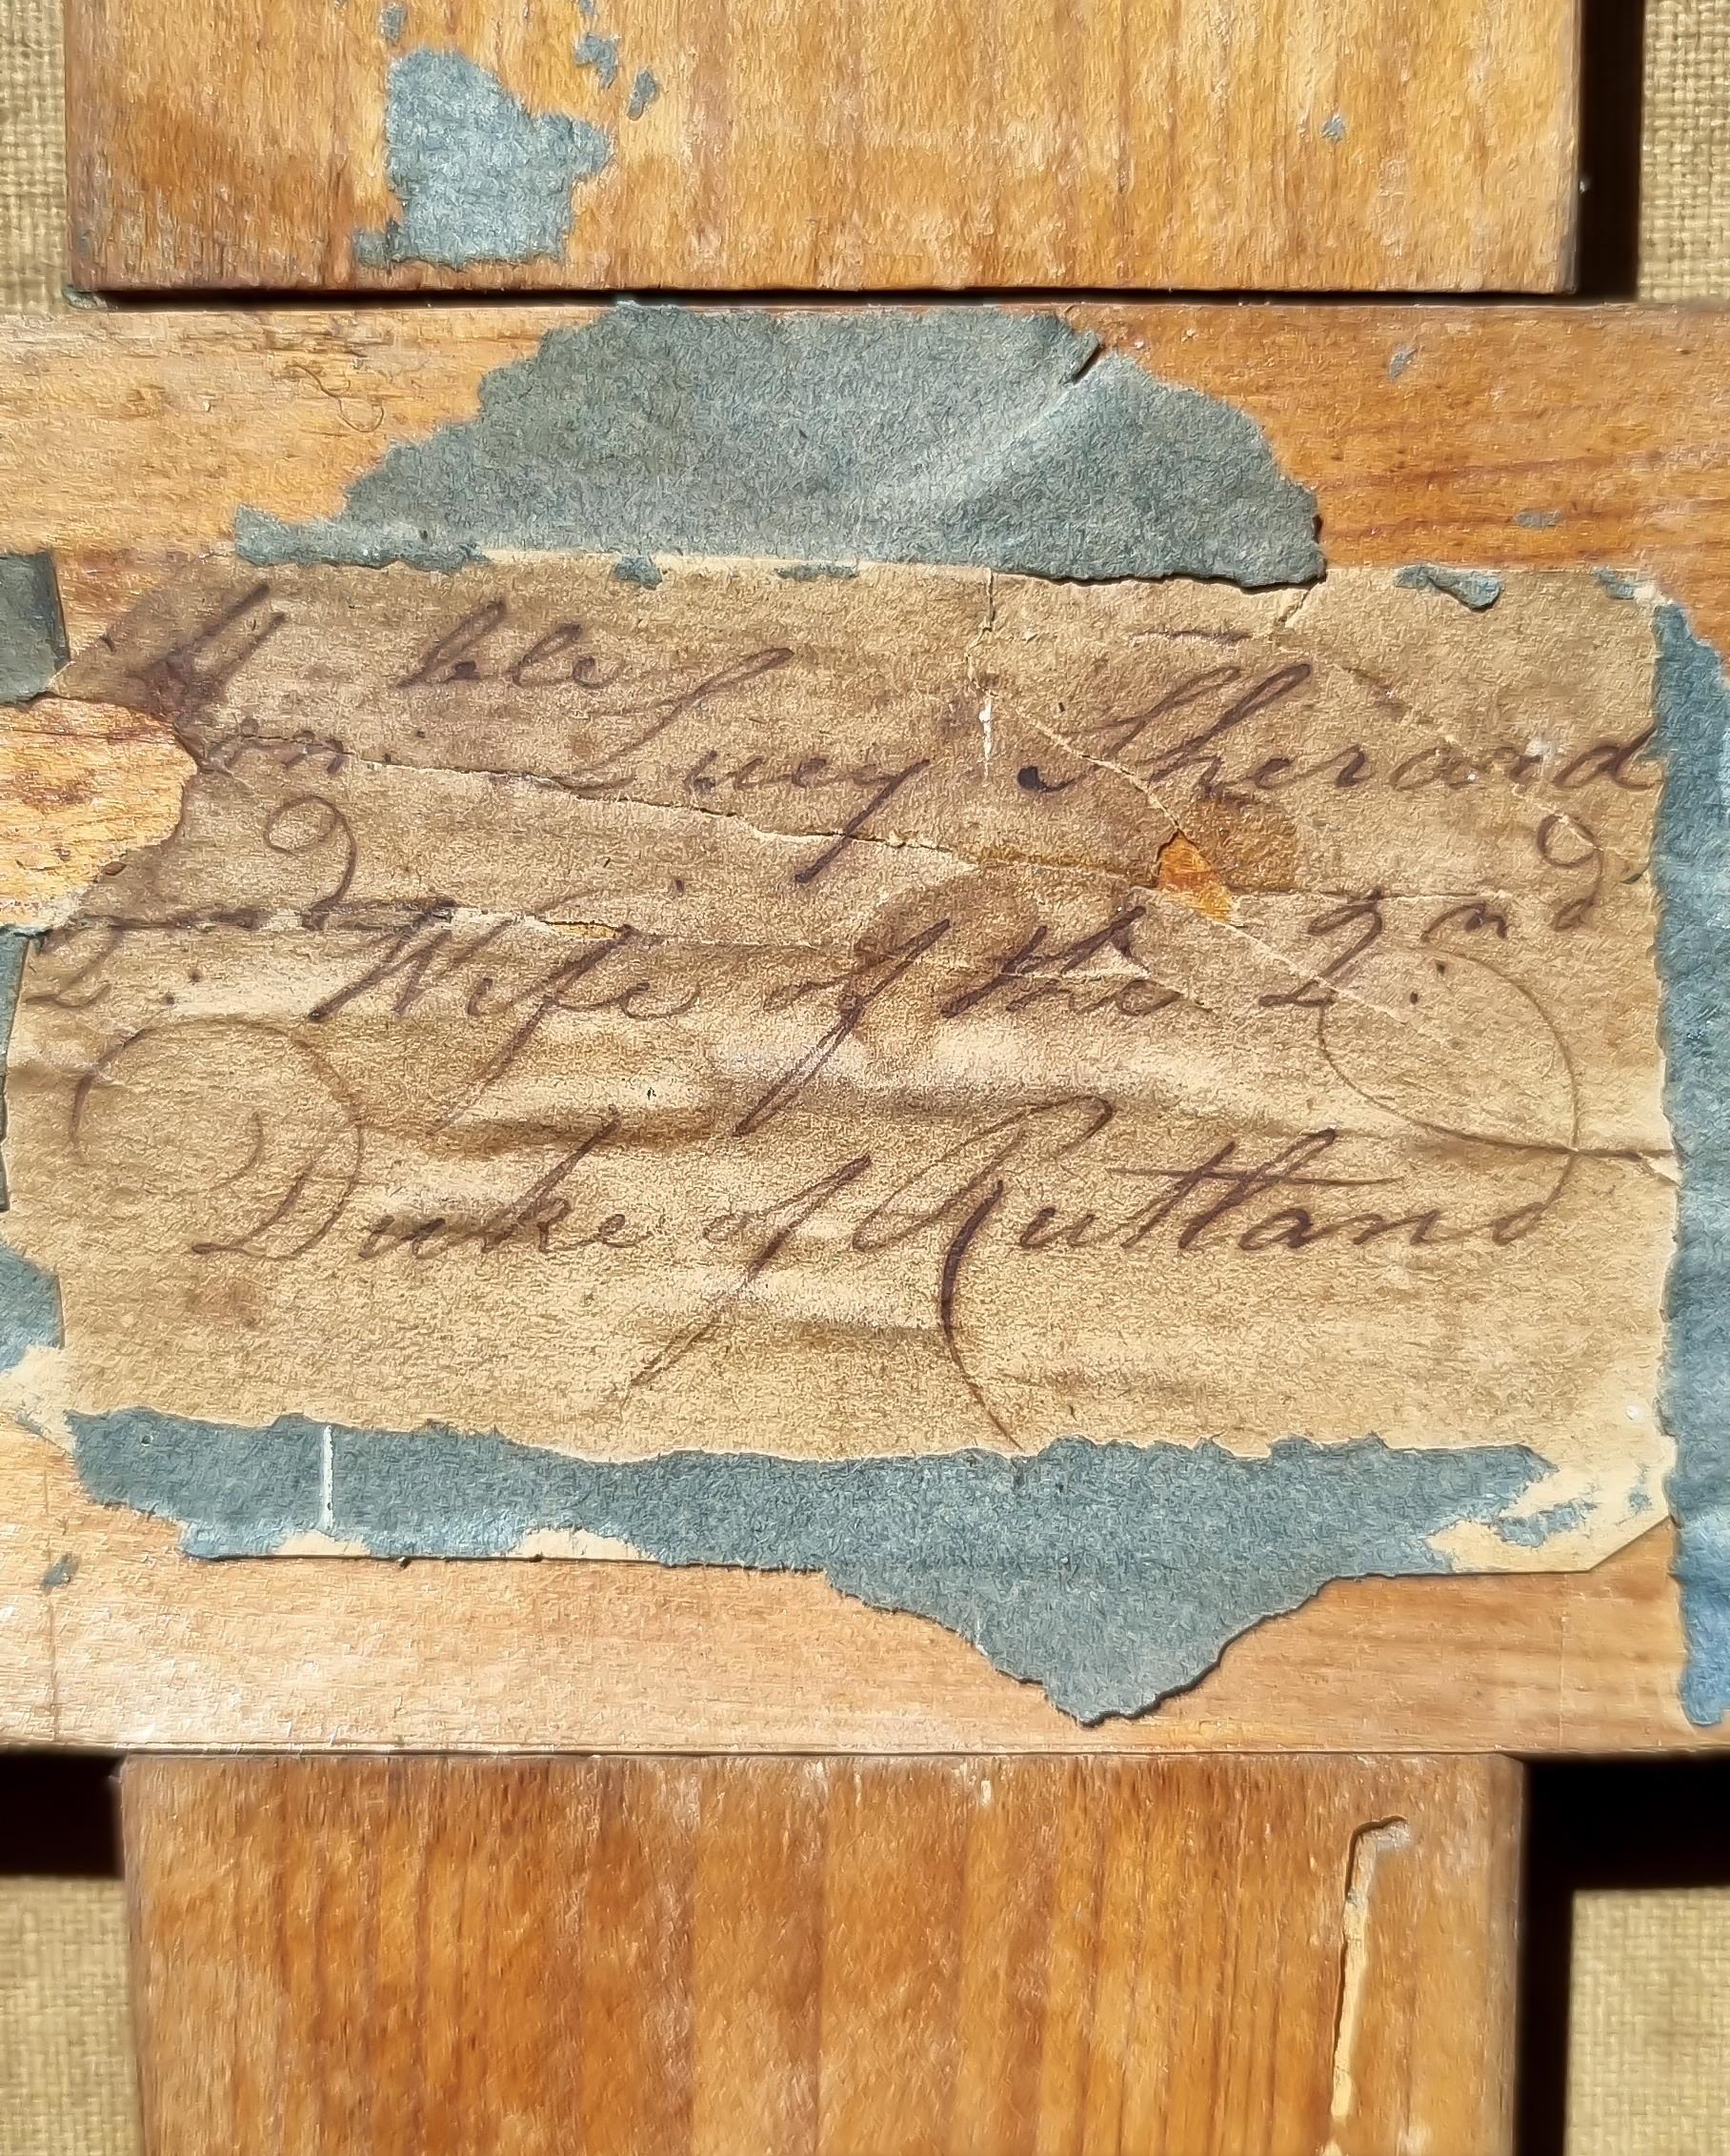 Honble Lucy Sherard
2nd Wife of the 2nd
Duke of Rutland